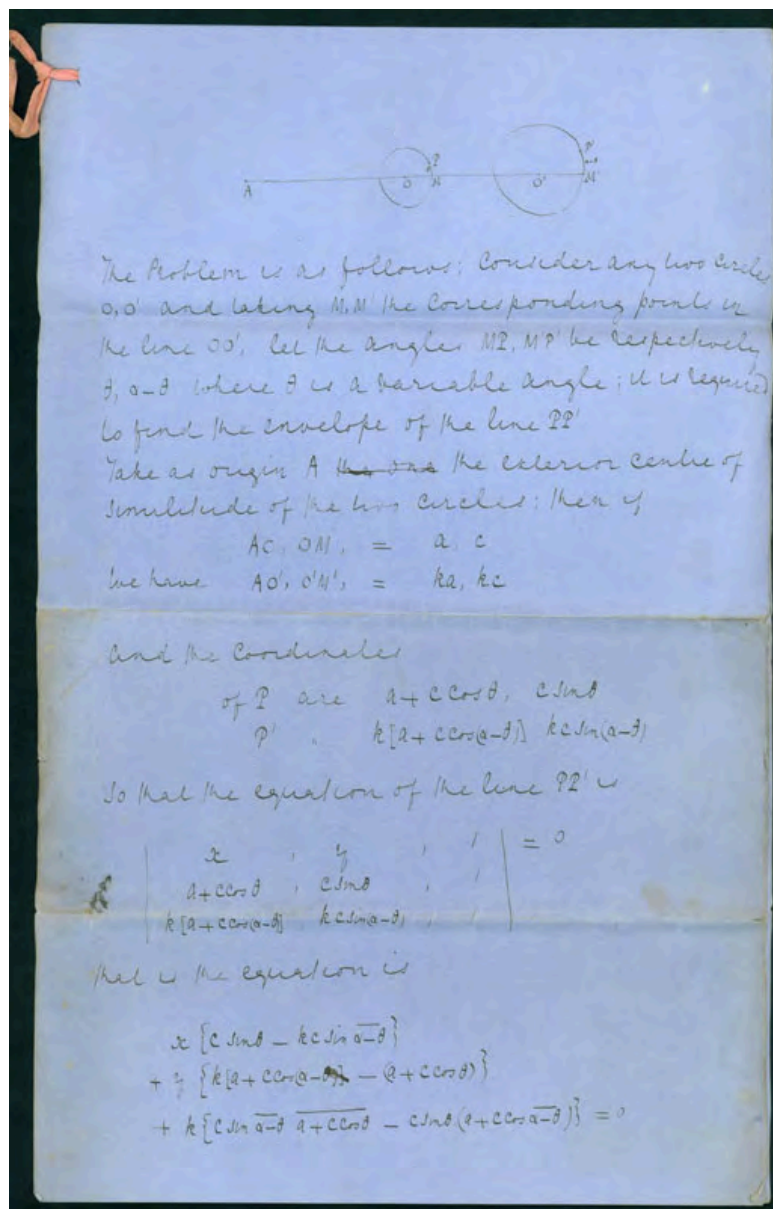 A O P M O' P' M'
The Problem is as follows: Consider any two circles
O, O' and taking M, M' the corresponding points in
the line OO', let the angles MP, M'P' be respectively
θ, α–θ where θ is a variable angle; it is required
to find the envelope of the line PP'
Take as origin A the one the exterior centre of
similitude of the two circles: then if
AO, OM, = a, c
we have AO', O'M', = ka, kc
and the coordinates
of P are a + c cos θ, c sin θ
P' " k[a + c cos(α–θ)] kc sin(α–θ)
So that the equation of the line PP' is
| x , y , 1 | = 0
| a + c cos θ , c sin θ , 1 |
| k[a + c cos(α–θ)] kc sin(α–θ), 1 |
that is the equation is
x {c sin θ – kc sin α–θ}
+ y {k[a + c cos(α–θ)] – (a + c cos θ)}
+ k {c sin α–θ a + c cos θ – c sin θ (a + c cos α–θ)} = 0